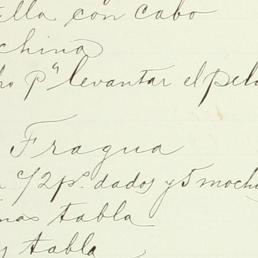 lla con cabo
china
ho pª levantar el pelo
Fragua
1/2 ps. dados y 5 moch
mas tabla
y tabla